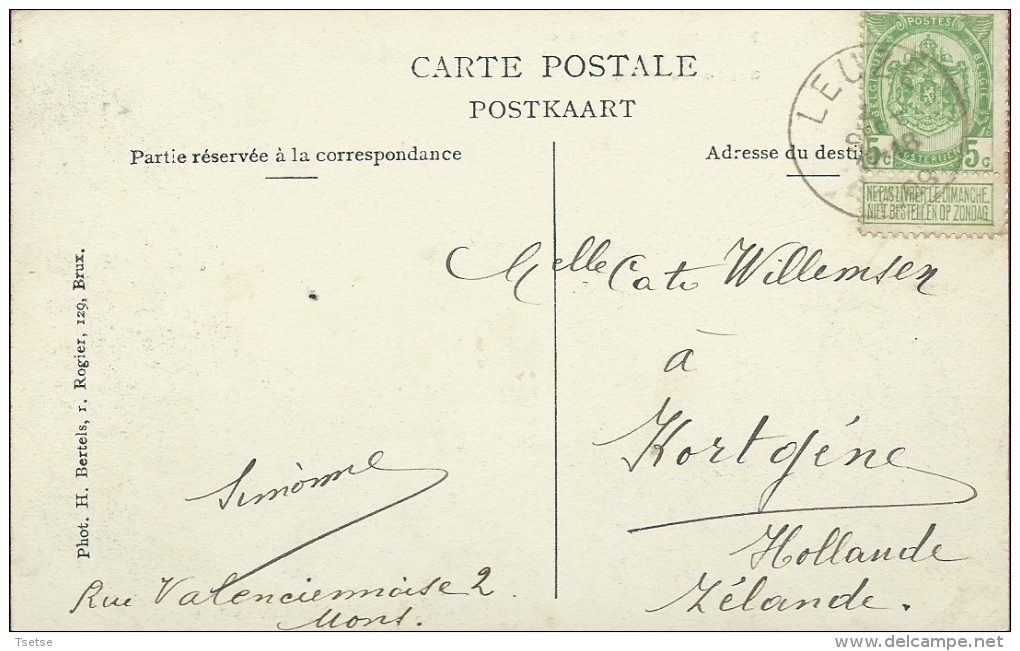 CARTE POSTALE
POSTKAART
Partie réservée à la correspondance
Adresse du desti
POSTES
BELGIQUE BELGIË
5c POSTERIJEN 5c
NE PAS LIVRER LE DIMANCHE
NIET BESTELLEN OP ZONDAG
LEUZ
18
09
Melle Cato Willemsen
à
Kortgéne
Hollande
Zélande.
Simònne
Rue Valenciennoise 2.
Mons.
Phot. H. Bertels, r. Rogier, 129, Brux.
Tsetse
delcampe.net